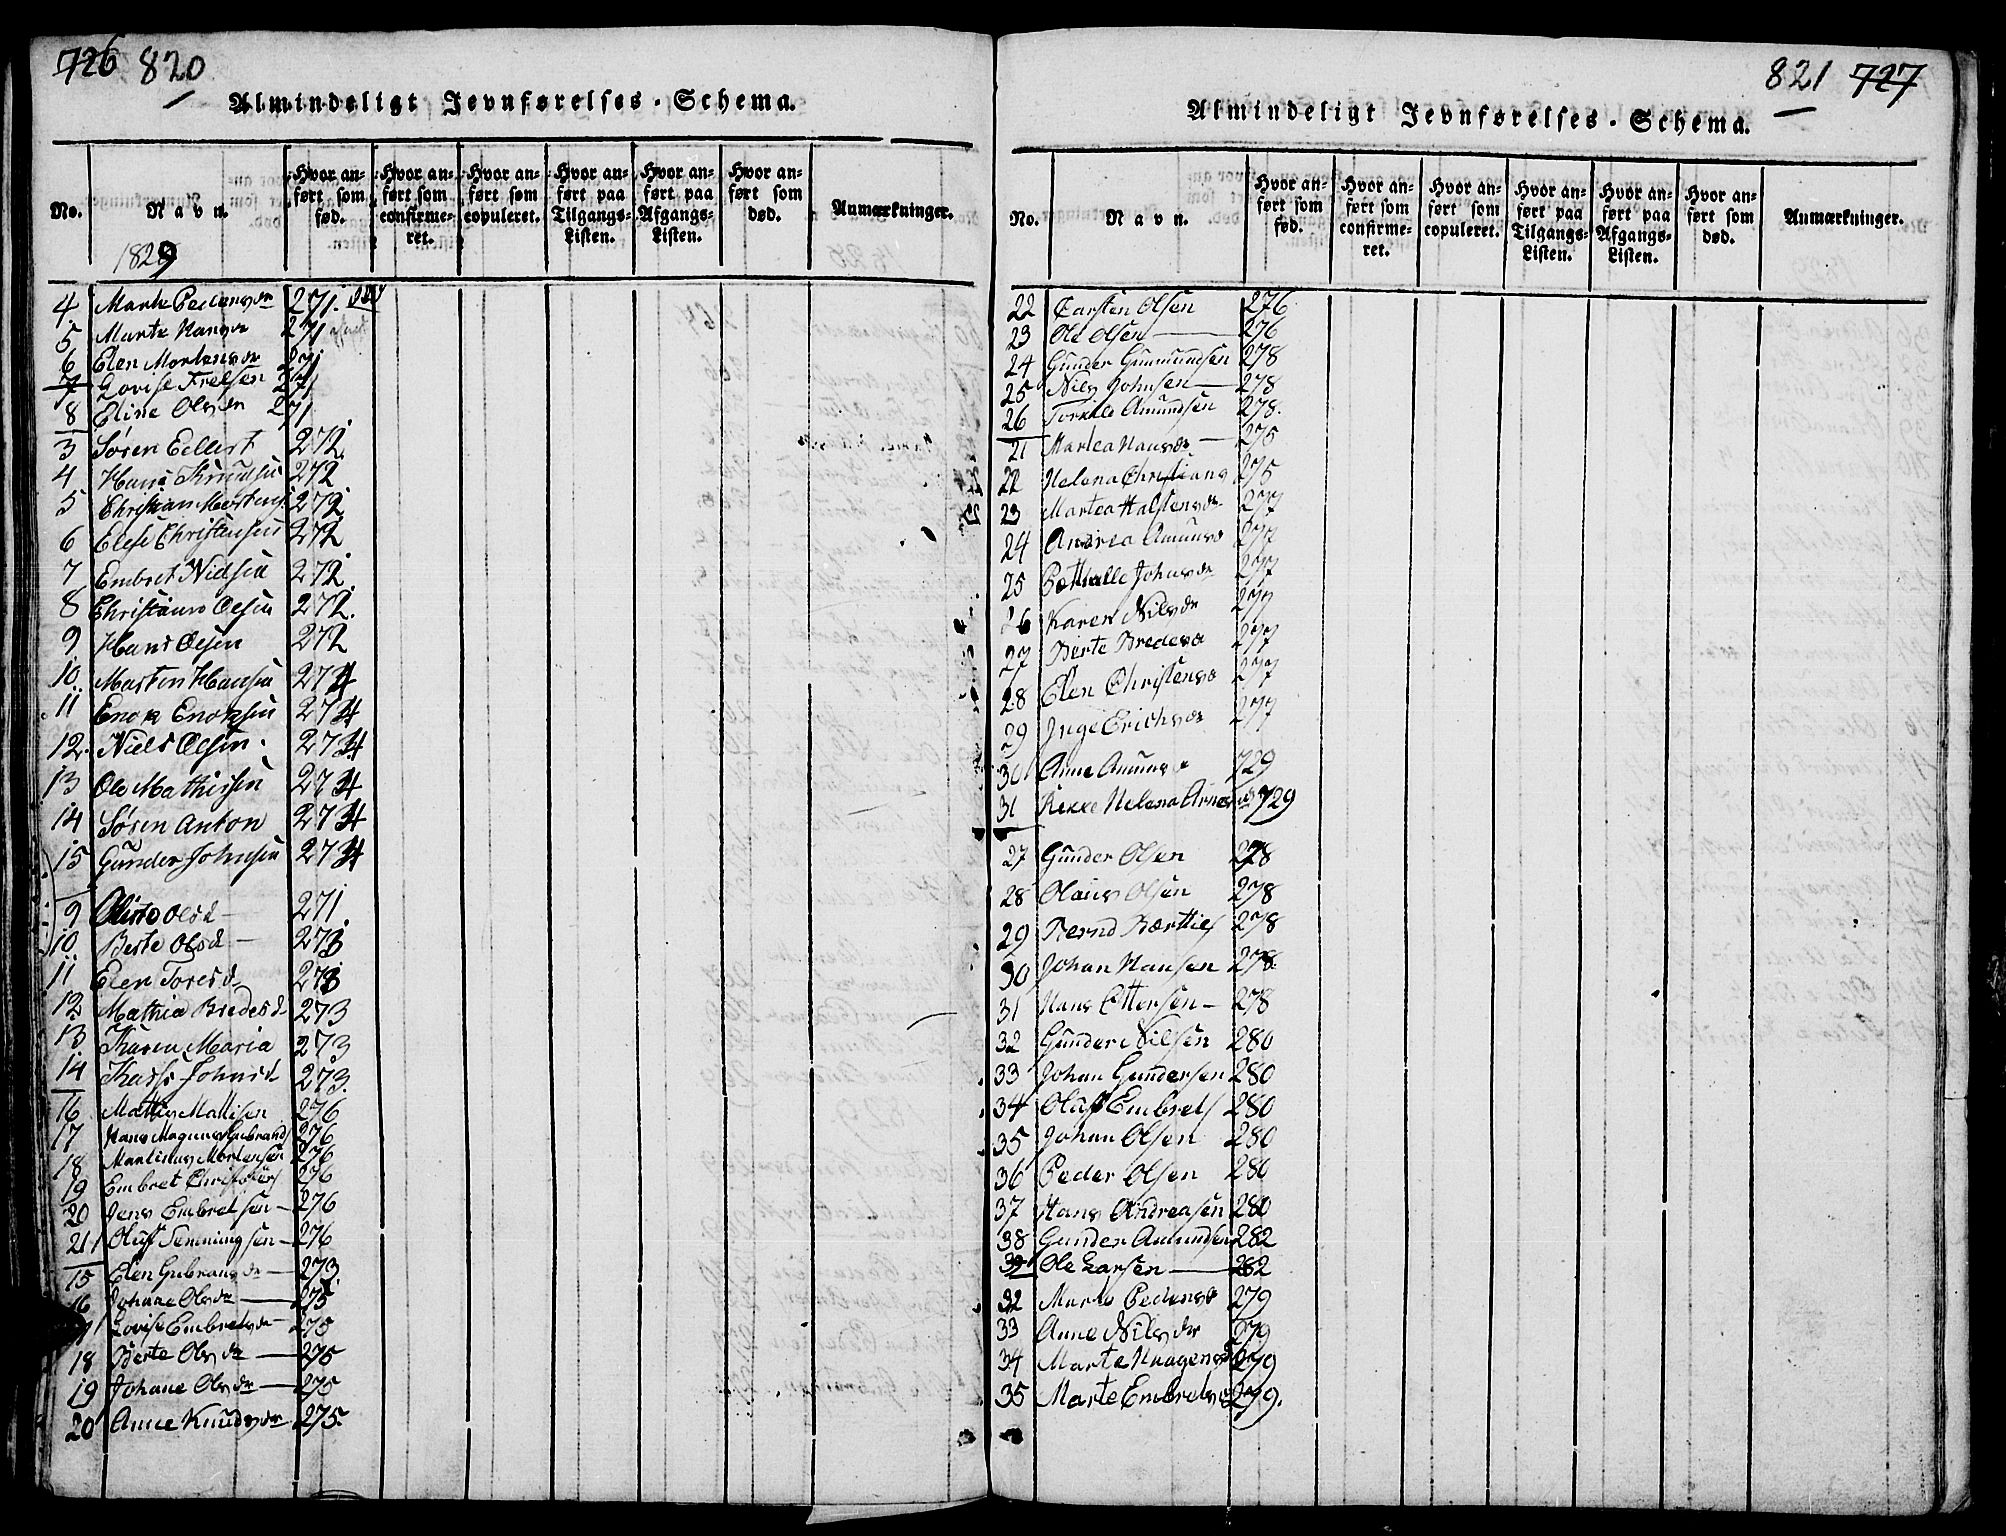 726 820
Almindeligt Jevnførelses-Schema.
No. Navn. Hvor anført som fød. Hvor anført som confirmeret. Hvor anført som copuleret. Hvor anført paa Tilgangs-Listen. Hvor anført paa Afgangs-Listen. Hvor anført som død. Anmærkninger.
1829
4 271.
5 271
6 Elen Mortensdr 271
7 Lovise 271
8 Eline Olsdr 271
3 Søren Eellert 272.
4 Hans Knudsen 272
5 272
6 272
7 Embret Nielsen 272.
8 Olsen 272.
9 Hans Olsen 272
10 Morten Hansen 274
11 Enok Enoksen 274
12. Niels Olsen. 274
13 Ole Mathissen 274
14 Søren Anton 274
15 Gunder Johnsen 274
9 Olsd 271
10 Berte Olsd 273
11 Elen Toresd 273
12 Mathia Bredesd 273
13 Karen Maria 273
14 Johnsd 273.
16 276
17 Hans Magnus 276
18 Martinus Mortensen 276
19 Embret 276
20 Jens Embretsen 276
21 Oluf 276
15 Elen Gubransdr 273
16 Johane Olsdr 275
Lovise Embretsdr 275
18 Berte Olsdr 275
19 Johane Olsdr 275
20 Anne Knudsdr 275.
821 727
Almindeligt Jevnførelses-Schema.
No. Navn. Hvor anført som fød. Hvor anført som confirmeret. Hvor anført som copuleret. Hvor anført paa Tilgangs-Listen. Hvor anført paa Afgangs-Listen. Hvor anført som død. Anmærkninger.
22 Carsten Olsen 276
23 Ole Olsen 276
24 Gunder 278
25 Nils Johnsen 278
26 Torkild Amundsen 278.
21 Martea Hansdr 275
22 Helena 275
23 Martea Halstensdr 277
24 Andrea 277
25 Johnsdr 277
26 Karen Nilsdr 277
27 Berte 277
28 Elen 277
29 Inge Erichsdr 277
30 Anne 729
31 Helena 729
27 Gunder Olsen 278
28 Olaus Olsen 278
29 278
30 Johan Hansen 278
31 Hans Ottersen 278
32 Gunder Nilsen 280
33 Johan Gundersen 280
34 Oluf Embrets 280
35 Johan Olsen 280
36 Peder Olsen 280
37 Hans Andreasen 280
38 Gunder Amundsen 282
39 Ole Larsen 282
32 279
33 Anne Nilsdr 279
34 Marte 279
35 Marte 279.